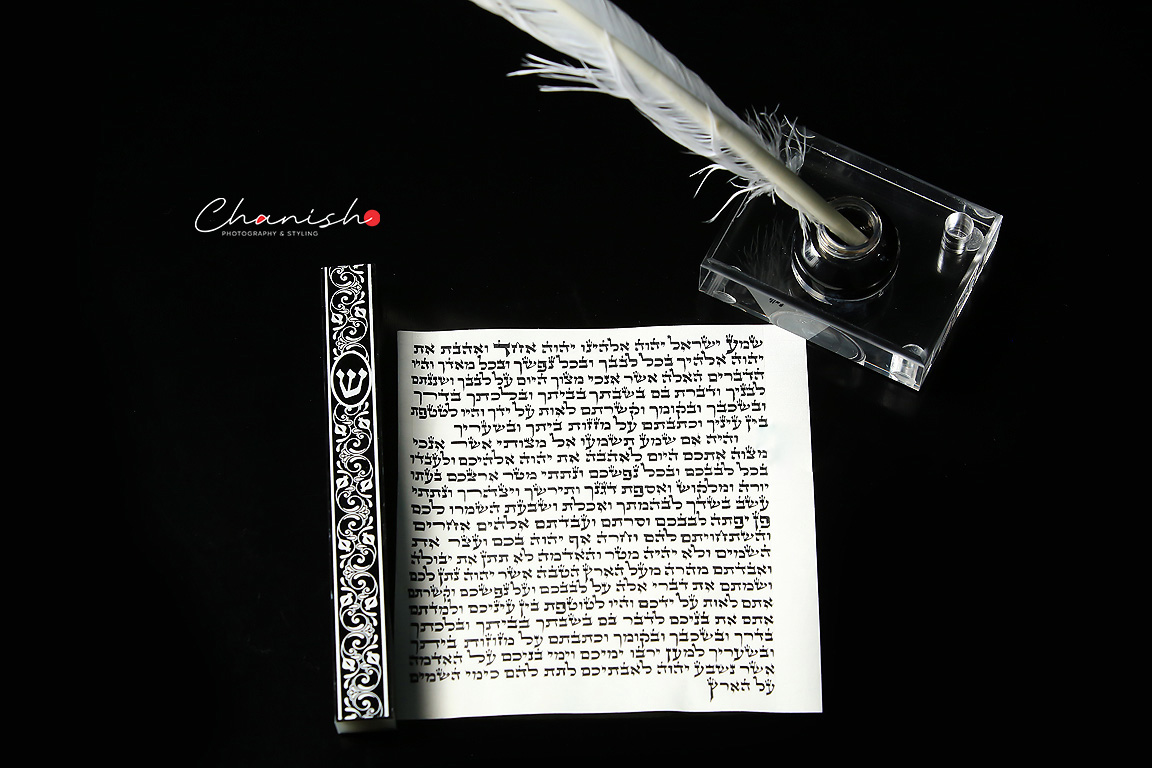 Chanish
PHOTOGRAPHY & STYLING
ש
שמע ישראל יהוה אלהינו יהוה אחד ואהבת את
יהוה אלהיך בכל לבבך ובכל נפשך ובכל מאדך והיו
הדברים האלה אשר אנכי מצוך היום על לבבך ושננתם
לבניך ודברת בם בשבתך בביתך ובלכתך בדרך
ובשכבך ובקומך וקשרתם לאות על ידך והיו לטטפת
בין עיניך וכתבתם על מזזות ביתך ובשעריך
והיה אם שמע תשמעו אל מצותי אשר אנכי
מצוה אתכם היום לאהבה את יהוה אלהיכם ולעבדו
בכל לבבכם ובכל נפשכם ונתתי מטר ארצכם בעתו
יורה ומלקוש ואספת דגנך ותירשך ויצהרך ונתתי
עשב בשדך לבהמתך ואכלת ושבעת השמרו לכם
פן יפתה לבבכם וסרתם ועבדתם אלהים אחרים
והשתחויתם להם וחרה אף יהוה בכם ועצר את
השמים ולא יהיה מטר והאדמה לא תתן את יבולה
ואבדתם מהרה מעל הארץ הטבה אשר יהוה נתן לכם
ושמתם את דברי אלה על לבבכם ועל נפשכם וקשרתם
אתם לאות על ידכם והיו לטוטפת בין עיניכם ולמדתם
אתם את בניכם לדבר בם בשבתך בביתך ובלכתך
בדרך ובשכבך ובקומך וכתבתם על מזוזות ביתך
ובשעריך למען ירבו ימיכם וימי בניכם על האדמה
אשר נשבע יהוה לאבתיכם לתת להם כימי השמים
על הארץ